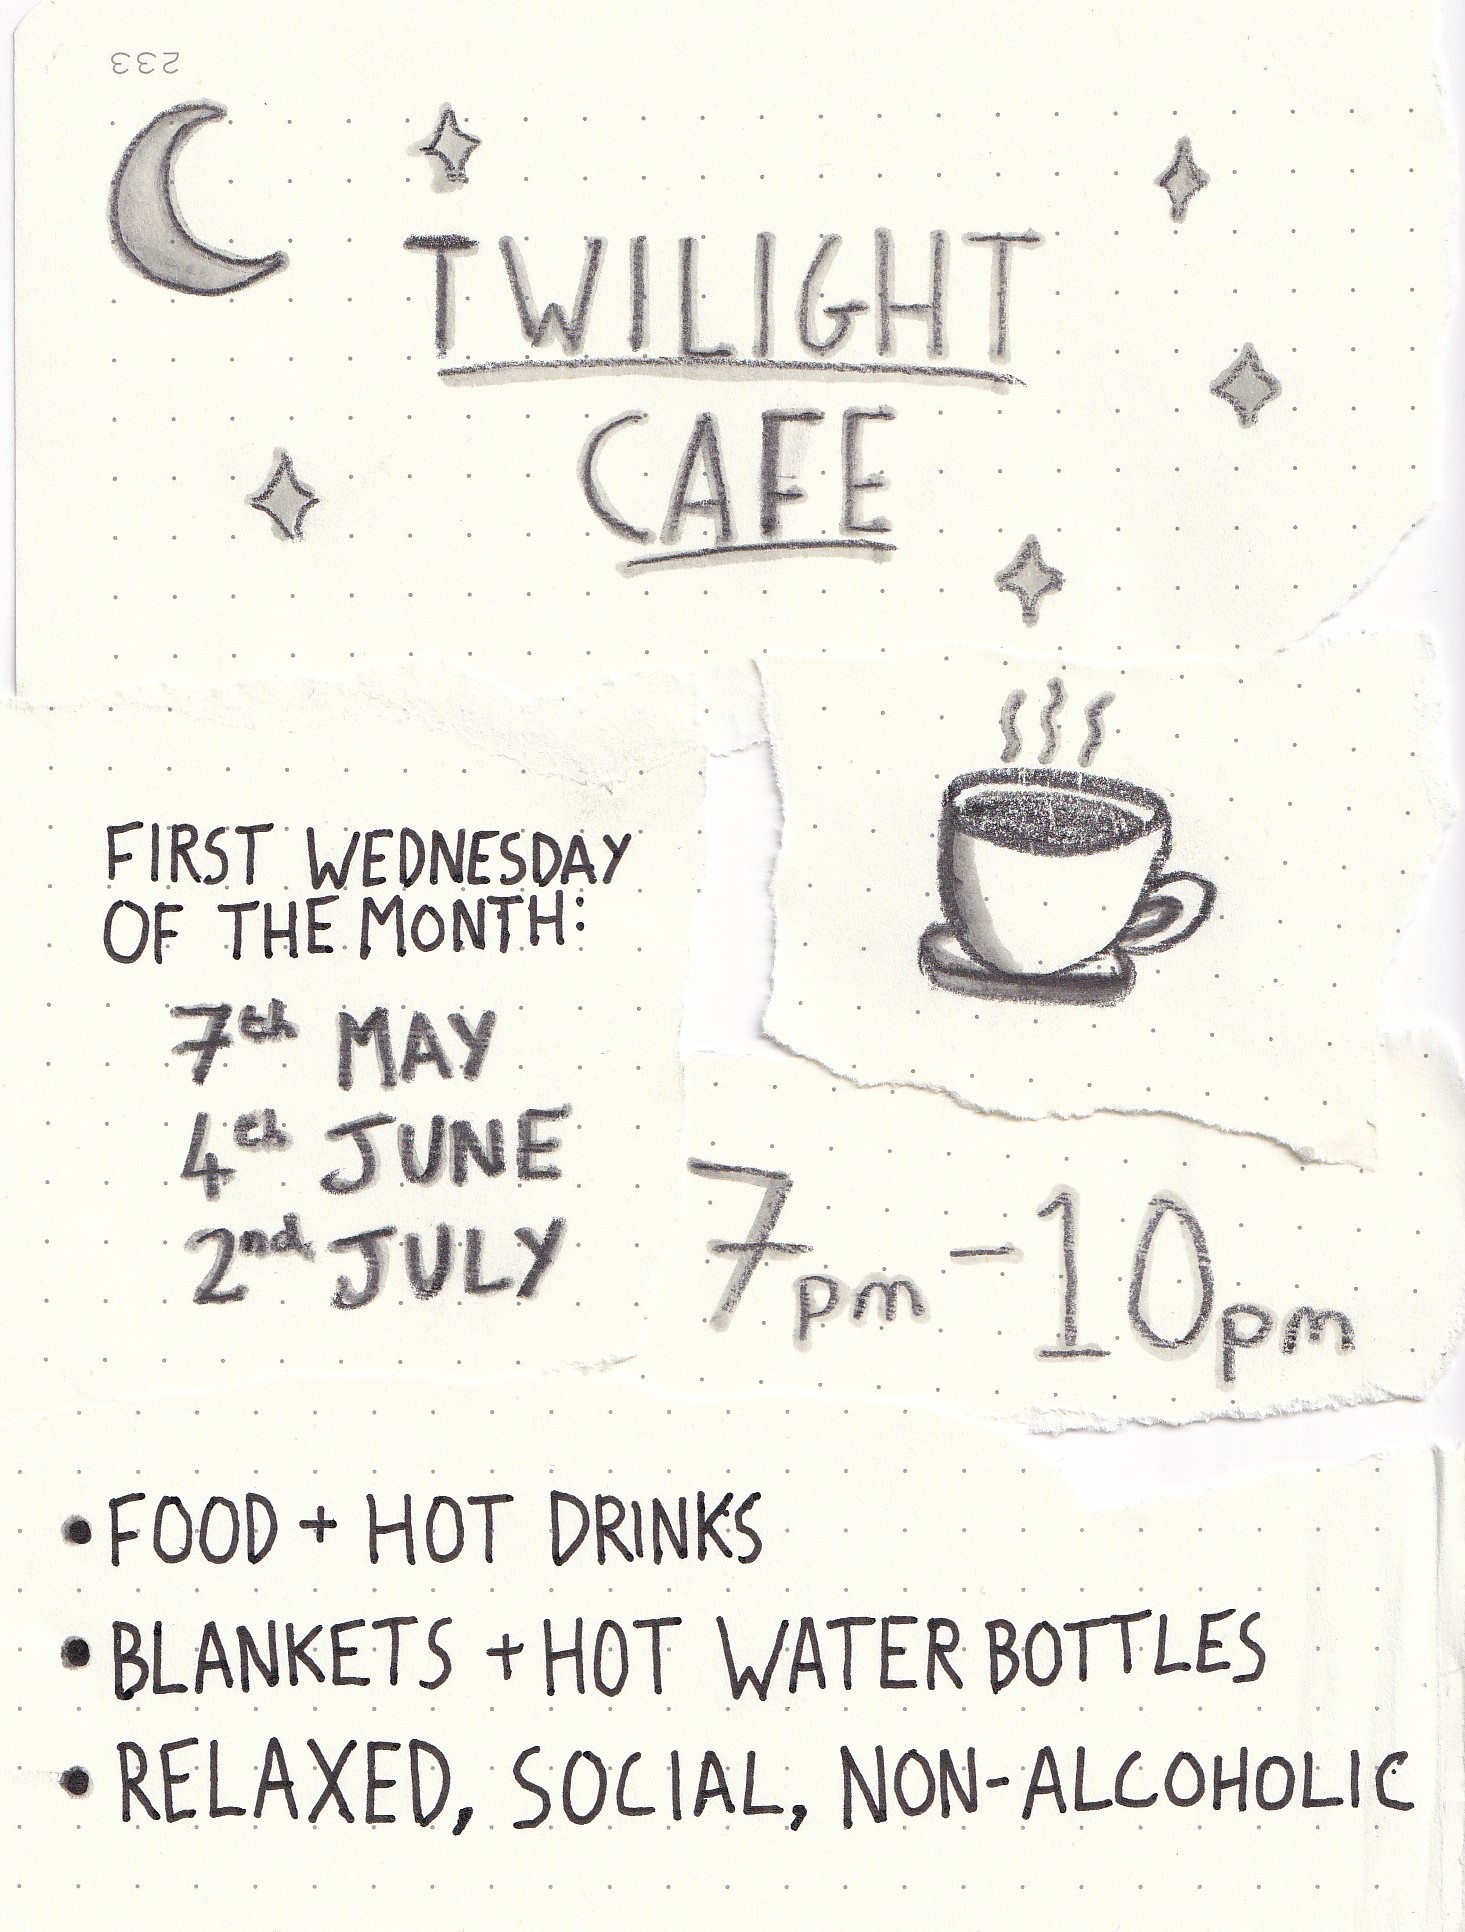 233
TWILIGHT
CAFE
FIRST WEDNESDAY
OF THE MONTH:
7th MAY
4th JUNE
2nd JULY
7pm - 10pm
• FOOD + HOT DRINKS
• BLANKETS + HOT WATER BOTTLES
• RELAXED, SOCIAL, NON-ALCOHOLIC